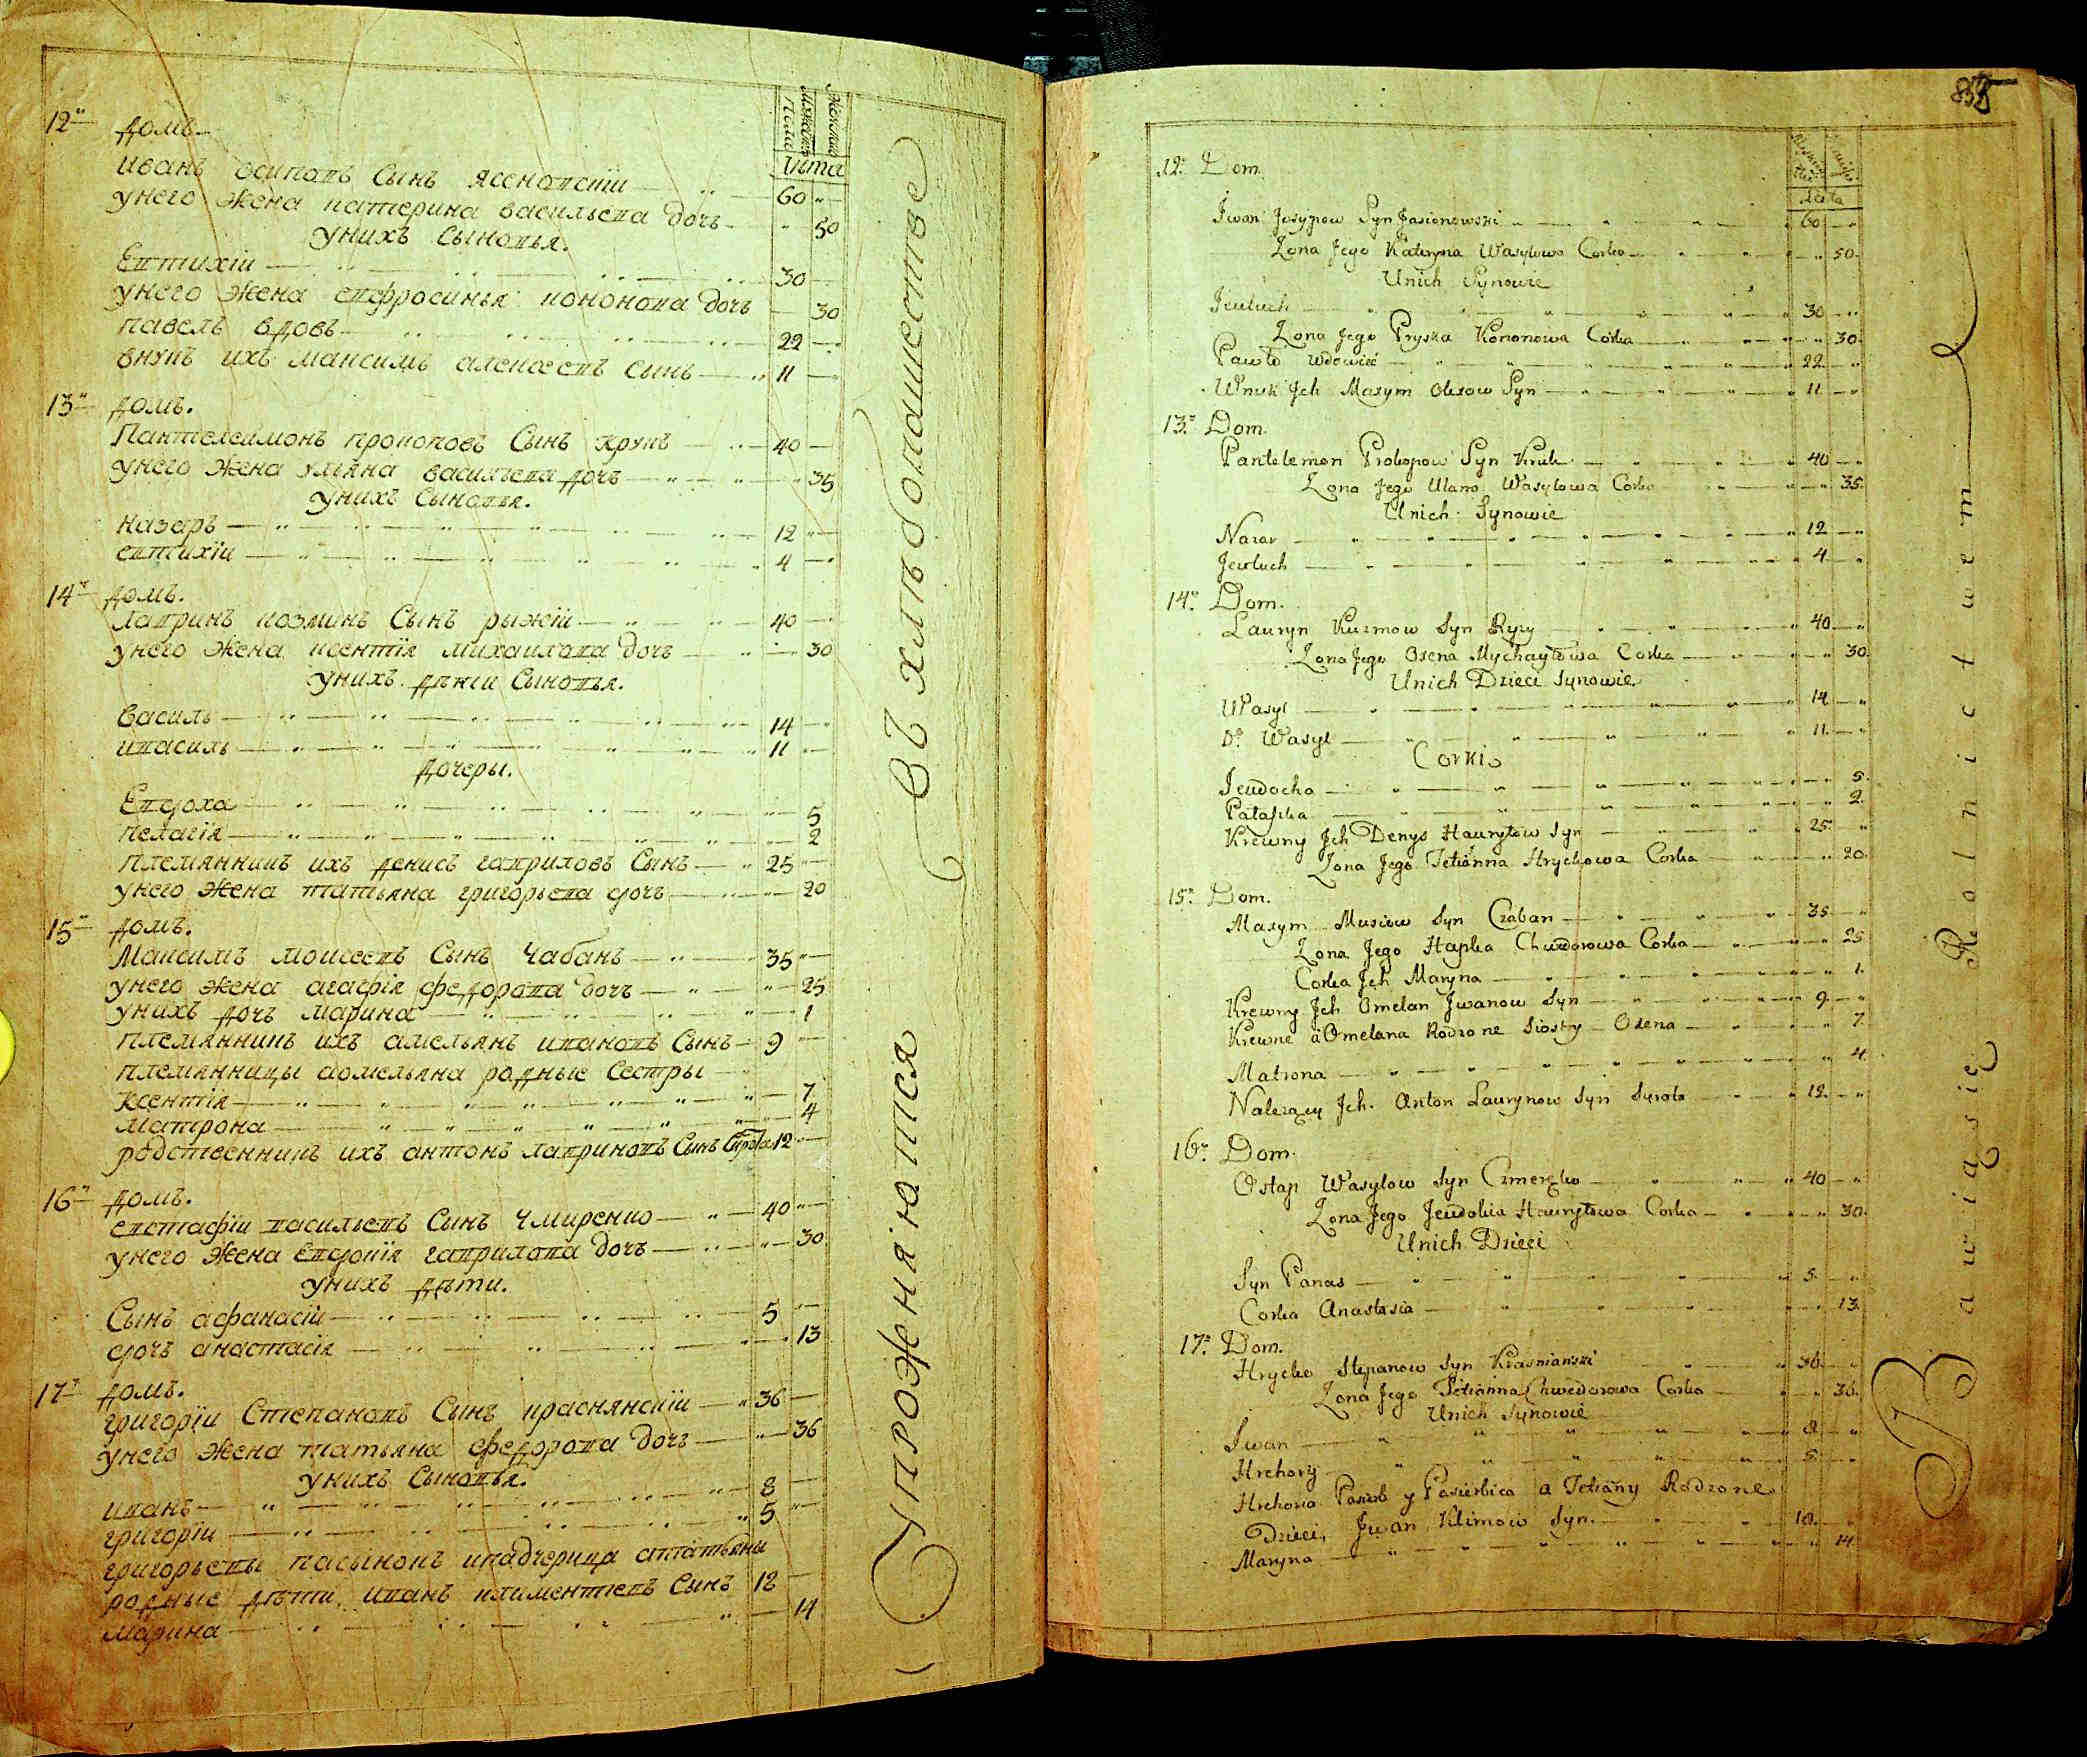 мужеска Полу
Женска
Лѣта
12й домъ
иванъ осиповъ Сынъ ясеновскїй 60
унего жена катерина васильева дочь 50
унихъ сыновья.
Евтихїй 30
унего жена евфросинья кононова дочь 30
павелъ вдовъ 22
внукъ ихъ максимъ алексеевъ сынъ 11
13й домъ.
Пантелеимонъ прокоповъ Сынъ крукъ 40
унего жена уляна васильева дочъ 35
унихъ Сыновья.
назаръ 12
евтихїй 4
14й домъ.
лавринъ козминъ Сынъ рыжїй 40
унего жена ксентїя михаилова дочь 30
унихъ дѣти Сыновья.
василь 14
ивасиль 11
дочеры.
Евдоха 5
пелагїя 2
племянникъ ихъ денисъ гавриловъ Сынъ 25
унего жена татьяна григорьева дочь 20
15й домъ.
Максимъ моисеевъ Сынъ Чабанъ 35
унего жена агафїя федорова дочъ 25
унихъ дочь марина 1
племянникъ ихъ амельянъ ивановъ Сынъ 9
племянницы аомельяна родные Сестры
ксентїя 7
матрона 4
родственникъ ихъ антонъ лавриновъ Сынъ Сирота 12
16й домъ.
евстафїй васильевъ Сынъ чмиренко 40
унего жена Евдокїя гаврилова дочь 30
унихъ дѣти.
Сынъ афанасїй 5
дочь анастасїя 13
17й домъ.
григорїй Степановъ Сынъ краснянскїй 36
унего жена татьяна федорова дочь 36
унихъ Сыновья.
иванъ 8
григорїй 5
григорьевы пасынокъ ипадчерица аптатьяны
родные дѣти, иванъ климентиевъ Сынъ 18
марина 14
Упроженяются въ хлѣбопашестве
85
Lata
12. Dom.
Jwan Josypow Syn Jasionowski 60
Zona Jego Kateryna Wasylowa Corka 50
Unich Synowie
Jewtuch 30
Zona Jego Pryska Kononowa Corka 30
Pawło wdowiec 22
Wnuk Jch Maxym Olexow Syn 11
13. Dom.
Pantelemon Prokopow Syn Kruk 40
Zona Jego Ulana Wasylowa Corka 35
Unich Synowie
Nazar 12
Jewtuch 4
14. Dom.
Lauryn Kuzmow Syn Ryzy 40
Zona Jego Oxena Mychayłowa Corka 30
Unich Dzieci Synowie
Wasyl 14
Do Wasyl 11
Corki
Jeudocha 5
Pałaszka 2
Krewny Jch Denys Hauryłow Syn 25
Zona Jego Tetianna Hryckowa Corka 20
15. Dom.
Maxym Musiow Syn Czaban 35
Zona Jego Hapka Chwedorowa Corka 25
Corka Jch Maryna 1
Krewny Jch Omelan Jwanow Syn 9
Krewne a Omelana Rodzone Siostry Oxena 7
Matrona 4
Nalezący Jch. Anton Laurynow Syn Syrota 12
16. Dom.
Ostap Wasylow Syn Czmerenko 40
Zona Jego Jeudokia Hauryłowa Corka 30
Unich Dzieci
Syn Panas 5
Corka Anastasia 13
17. Dom.
Hrycko Stepanow Syn Krasnianski 36
Zona Jego Tetianna Chwedorowa Corka 36
Unich Synowie
Jwan 8
Hrehory 5
Hrehora Pasierb y Pasierbica a Tetiany Rodzone
Dzieci, Jwan Klimow Syn. 18
Maryna 14
Bawiąsię Rolnictwem